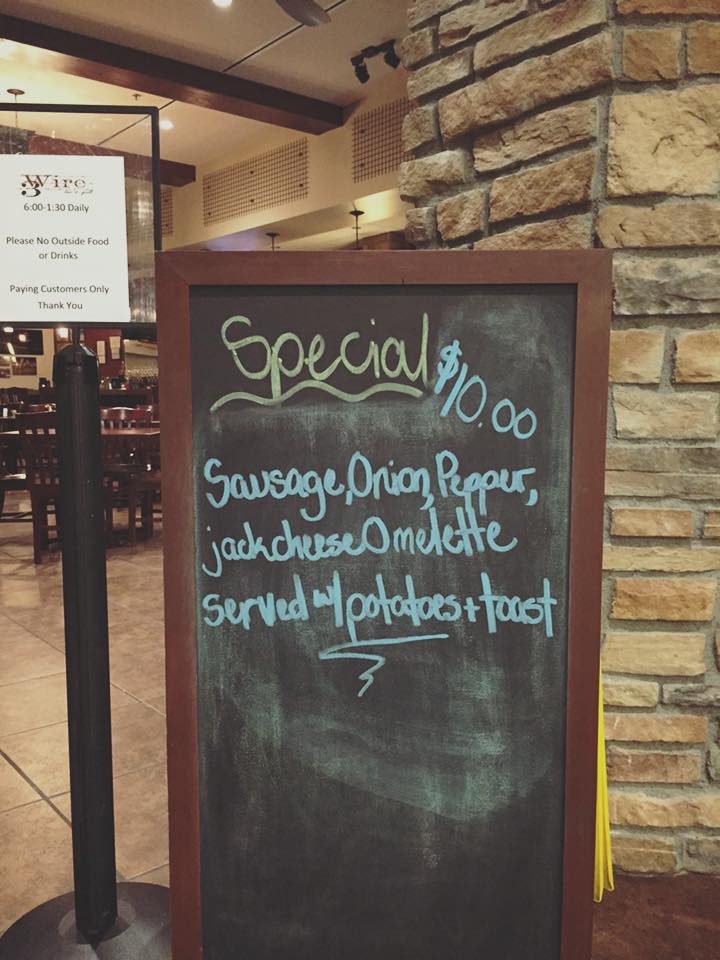 3 Wire
6:00-1:30 Daily
Please No Outside Food
or Drinks
Paying Customers Only
Thank You
Special $10.00
Sausage, Onion, Pepper,
jack cheese Omelette
served w/ potatoes + toast